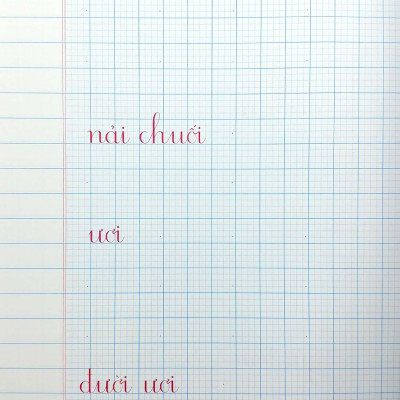 nải chuối
ươi
đười ươi